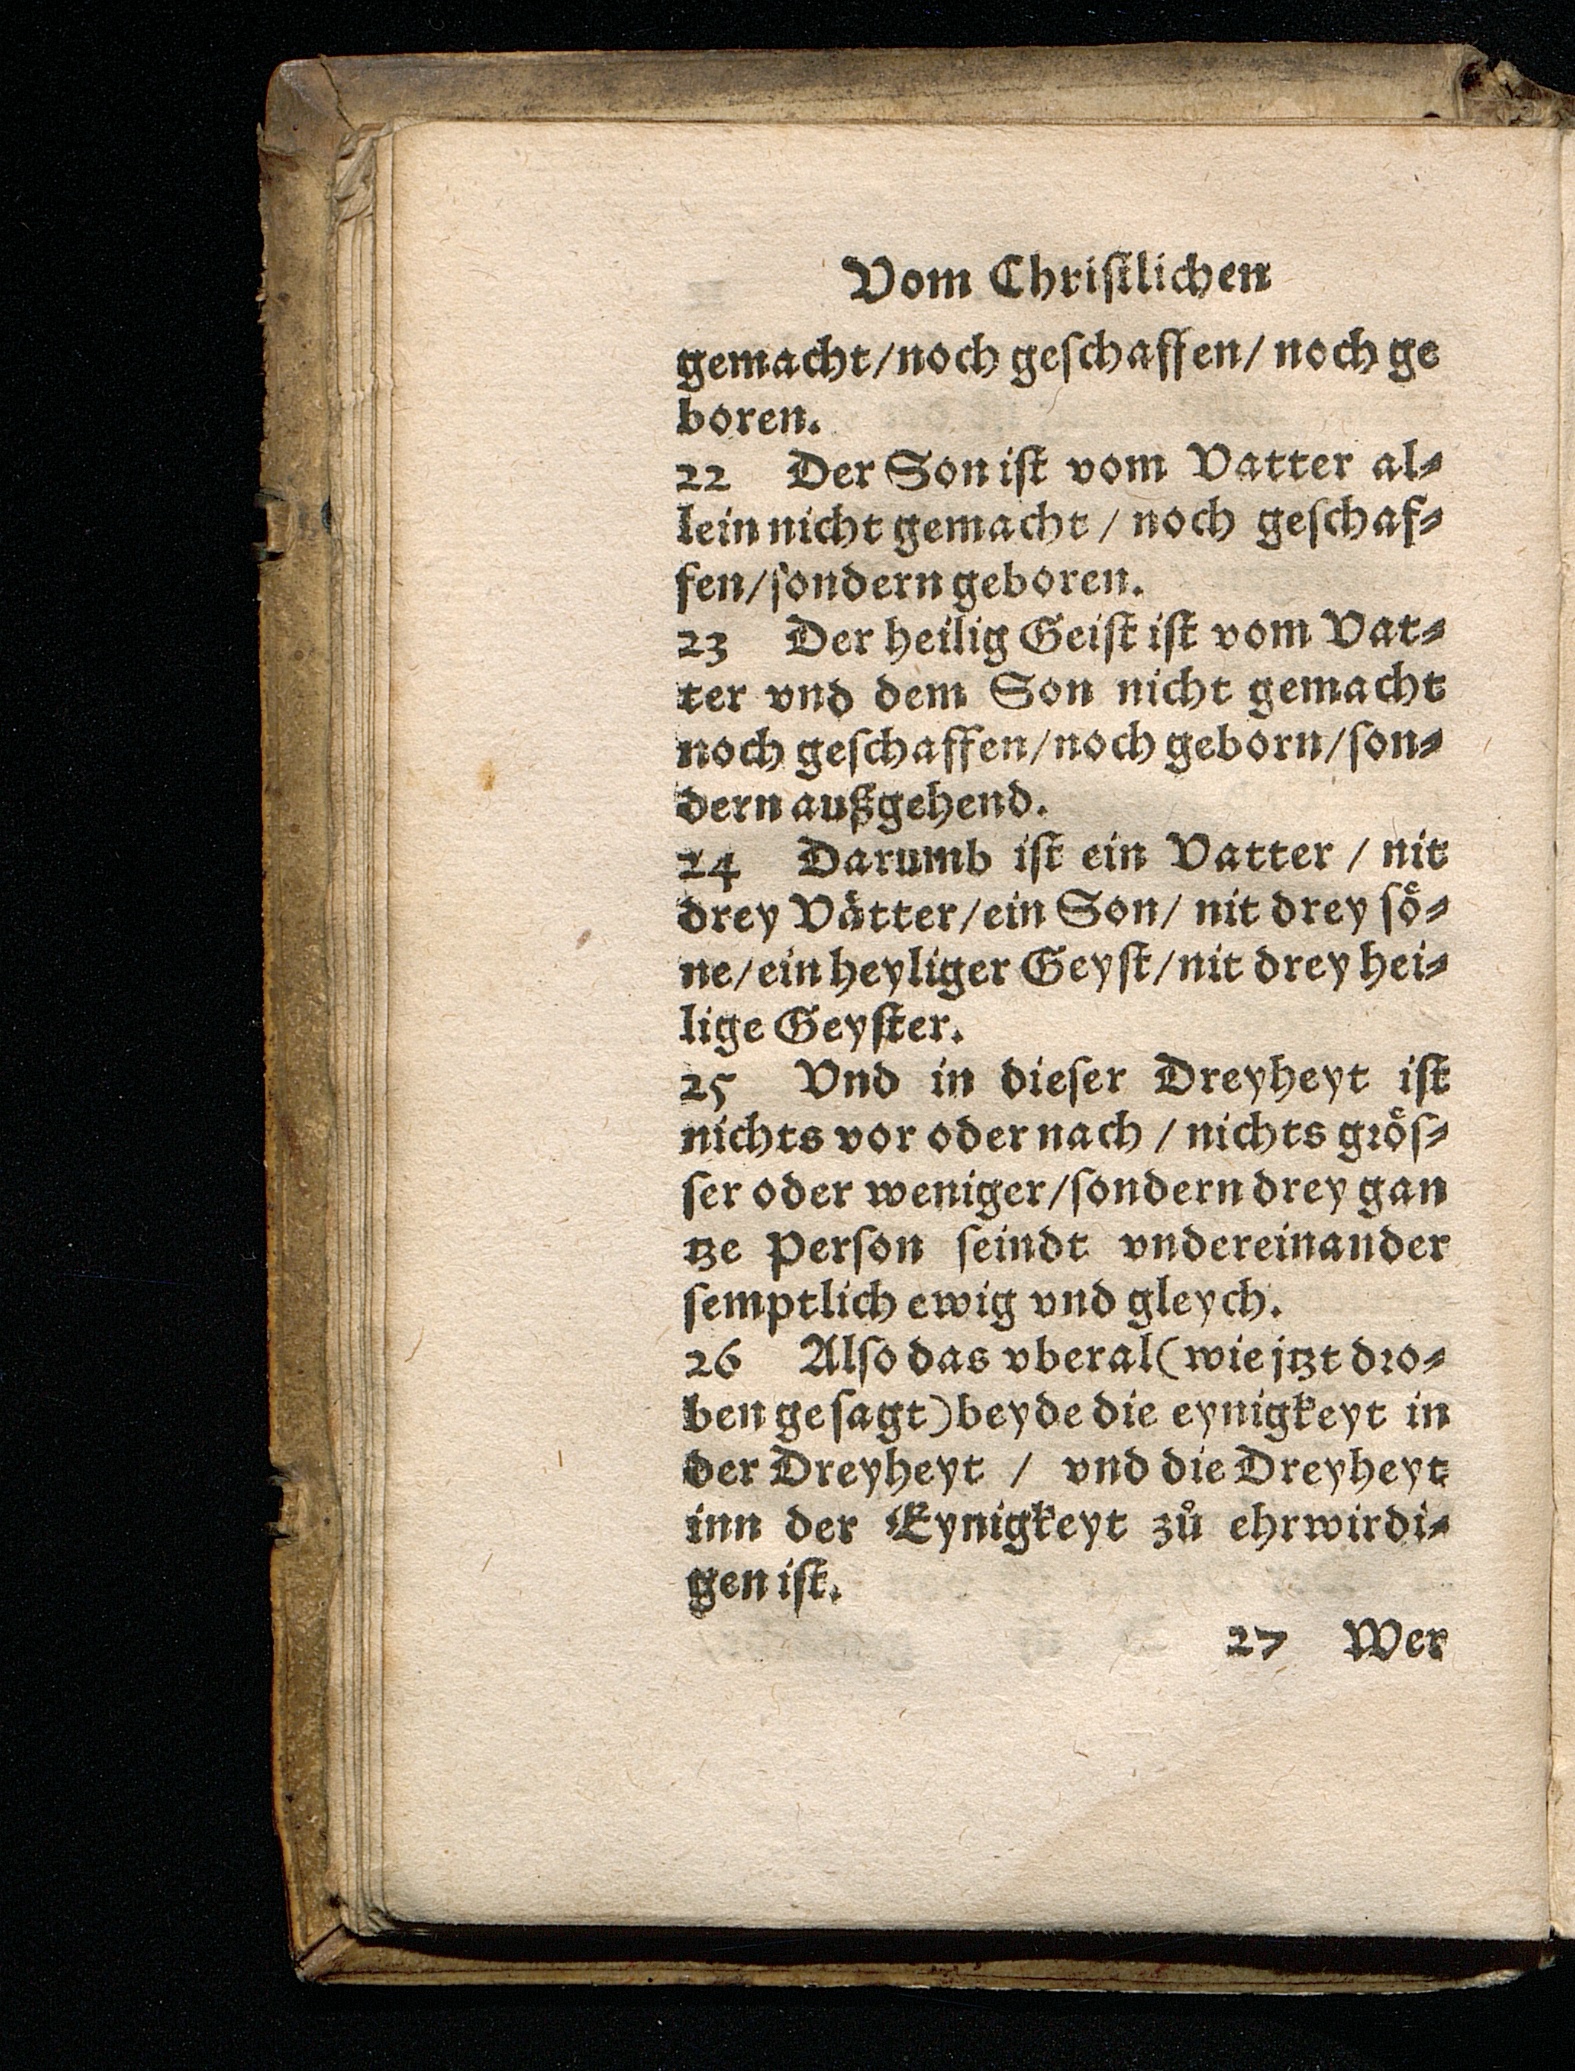 Vom Chriſtlichen
gemacht/noch geſchaffen/ noch ge
boren.
22 Der Son iſt vom Vatter al⸗
lein nicht gemacht / noch geſchaf⸗
fen/ſondern geboren.
23 Der heilig Geiſt iſt vom Vat⸗
ter vnd dem Son nicht gemacht
noch geſchaffen/noch geborn/ſon⸗
dern außgehend.
24 Darumb iſt ein Vatter / nit
drey Vaͤtter/ein Son/ nit drey ſoͤ⸗
ne/ein heyliger Geyſt/nit drey hei⸗
lige Geyſter.
25 Vnd in dieſer Dreyheyt iſt
nichts vor oder nach / nichts gꝛoͤſ⸗
ſer oder weniger/ſondern drey gan
tze Perſon ſeindt vndereinander
ſemptlich ewig vnd gleych.
26 Alſo das vberal(wie jtzt dꝛo⸗
ben geſagt)beyde die eynigkeyt in
der Dreyheyt / vnd die Dreyheyt
inn der Eynigkeyt zuͦ ehrwirdi⸗
gen iſt.
27 Wer